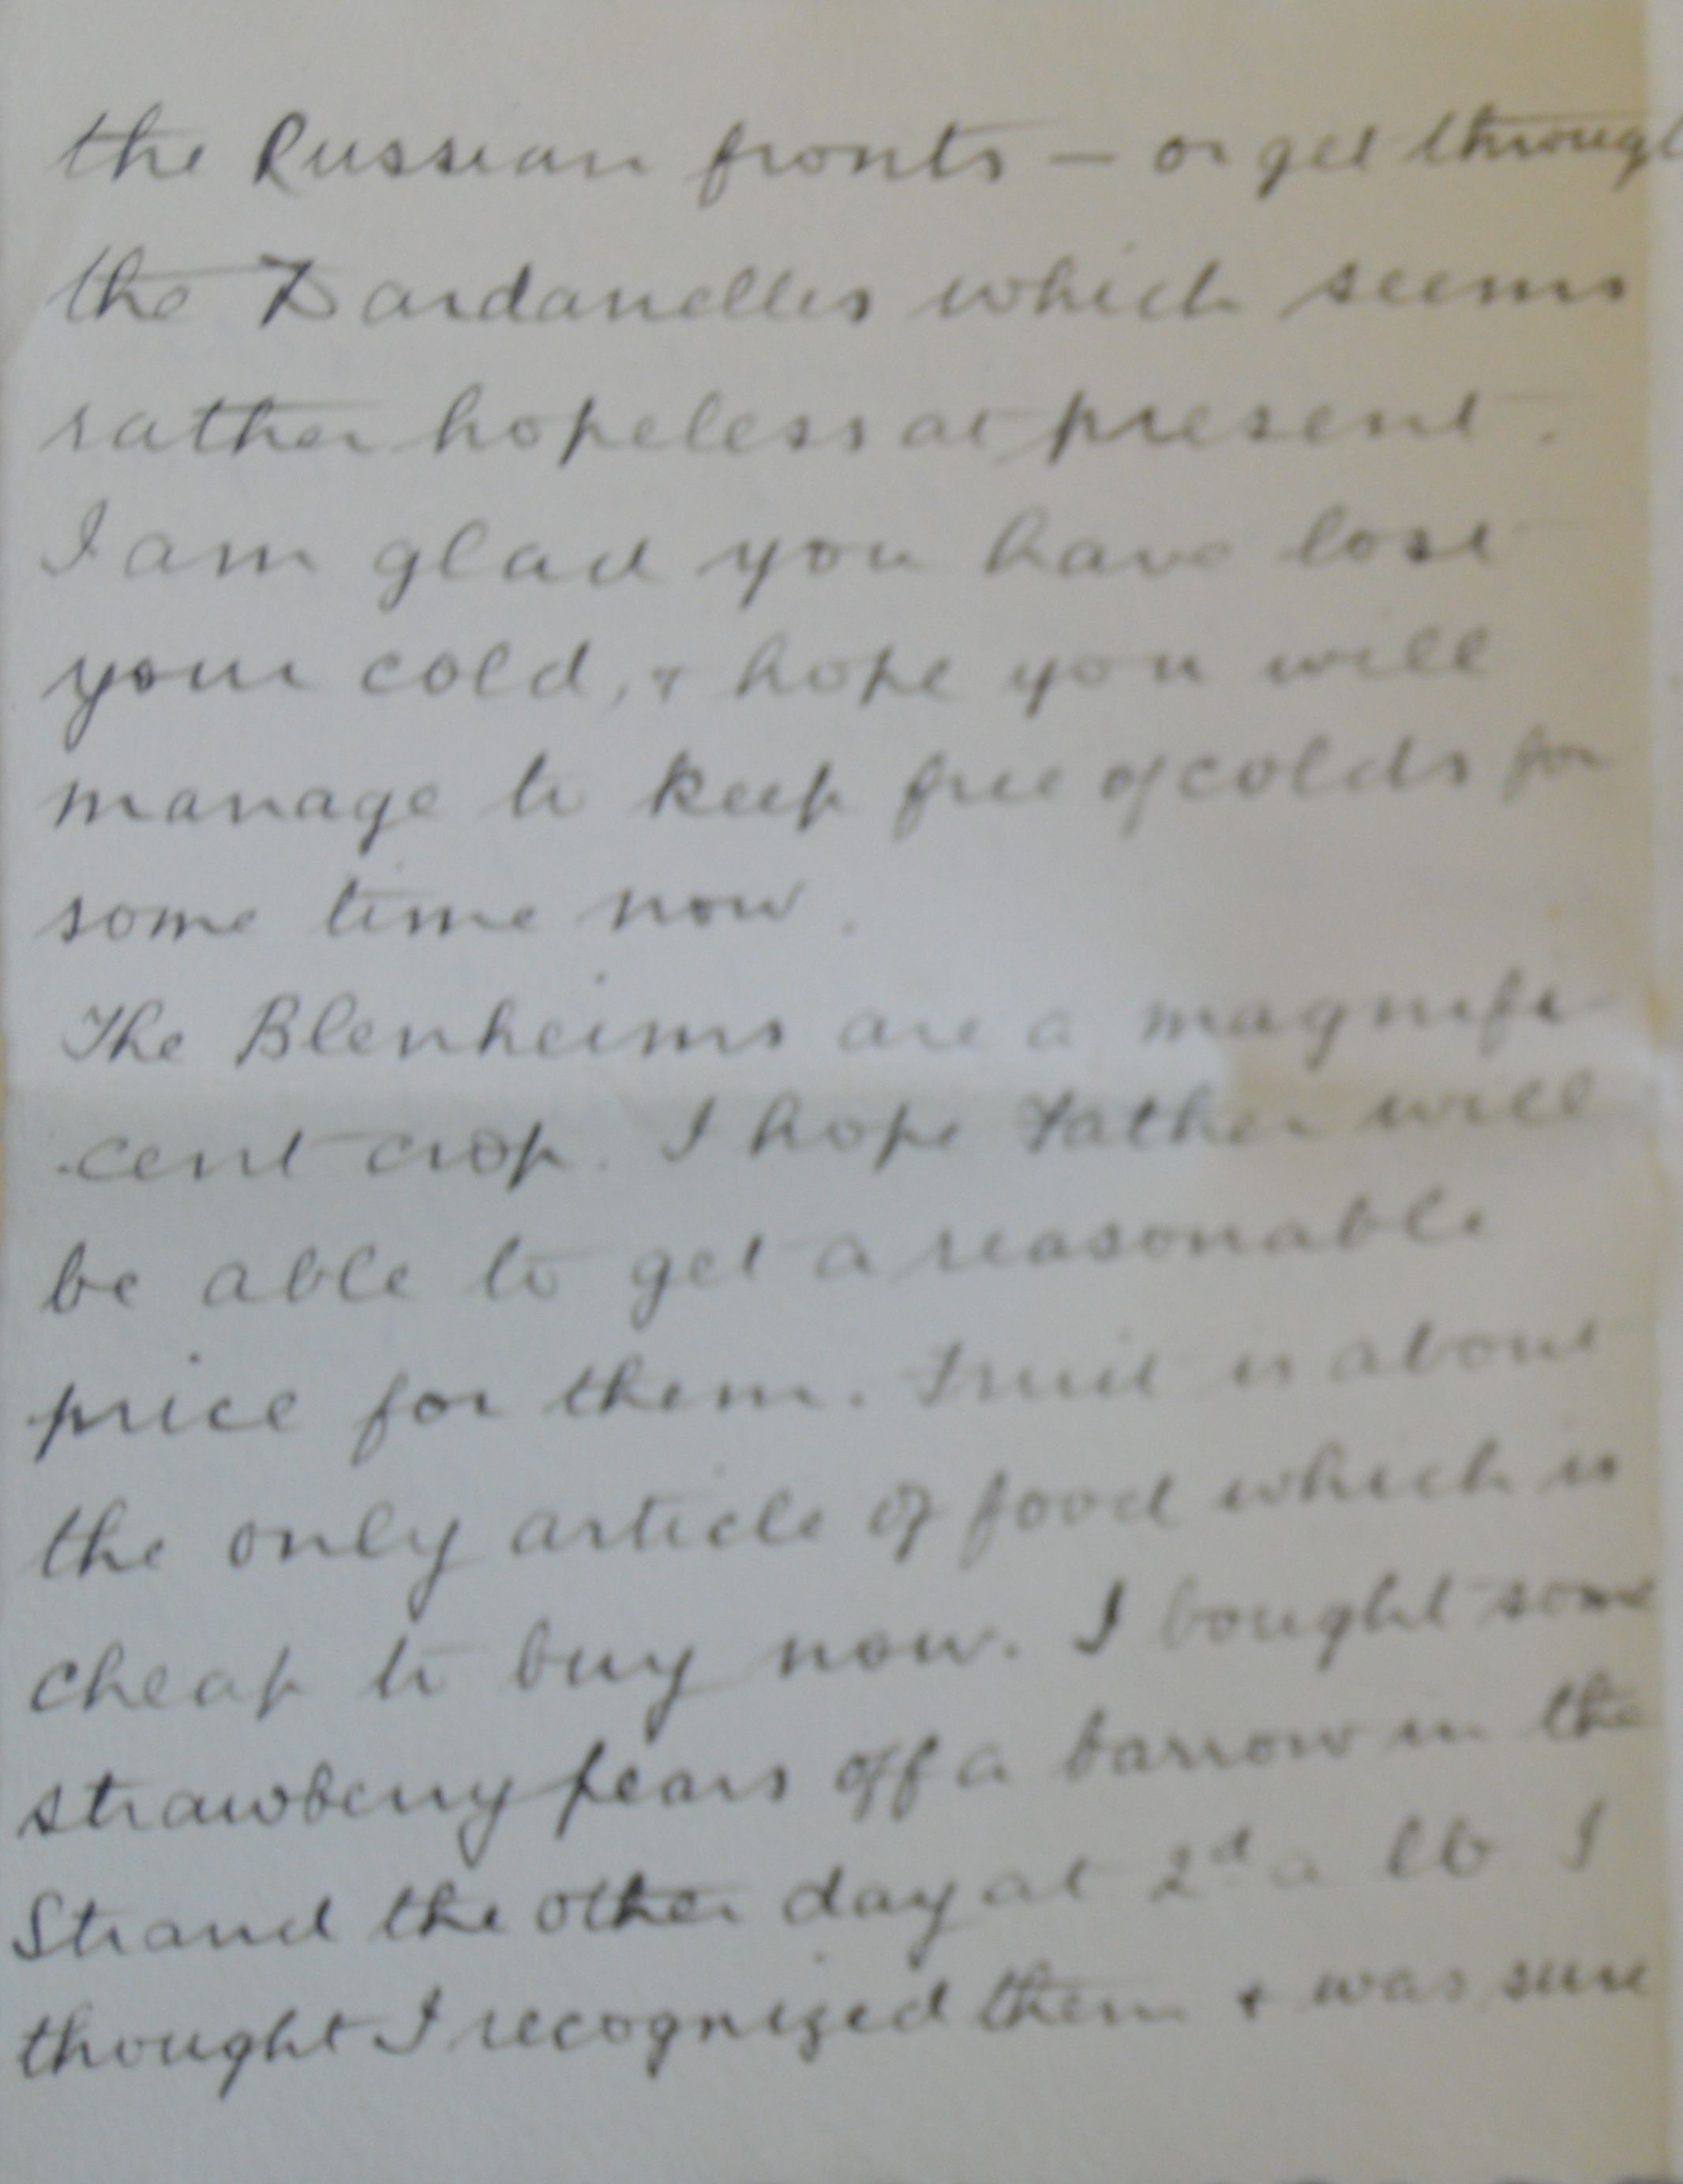 the Russian fronts — or get through
the Dardanelles which seems
rather hopeless at present.
I am glad you have lost
your cold, + hope you will
manage to keep free of colds for
some time now.
The Blenheims are a magnifi
-cent crop. I hope Father will
be able to get a reasonable
price for them. Fruit is about
the only article of food which is
cheap to buy now. I bought some
strawberry pears off a barrow in the
Strand the other day at 2d a lb I
thought I recognized them + was sure